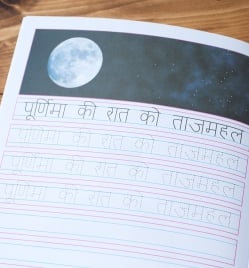 पूर्णिमा की रात को ताजमहल
पूर्णिमा की रात को ताजमहल
पूर्णिमा की रात को ताजमहल
पूर्णिमा की रात को ताजमहल